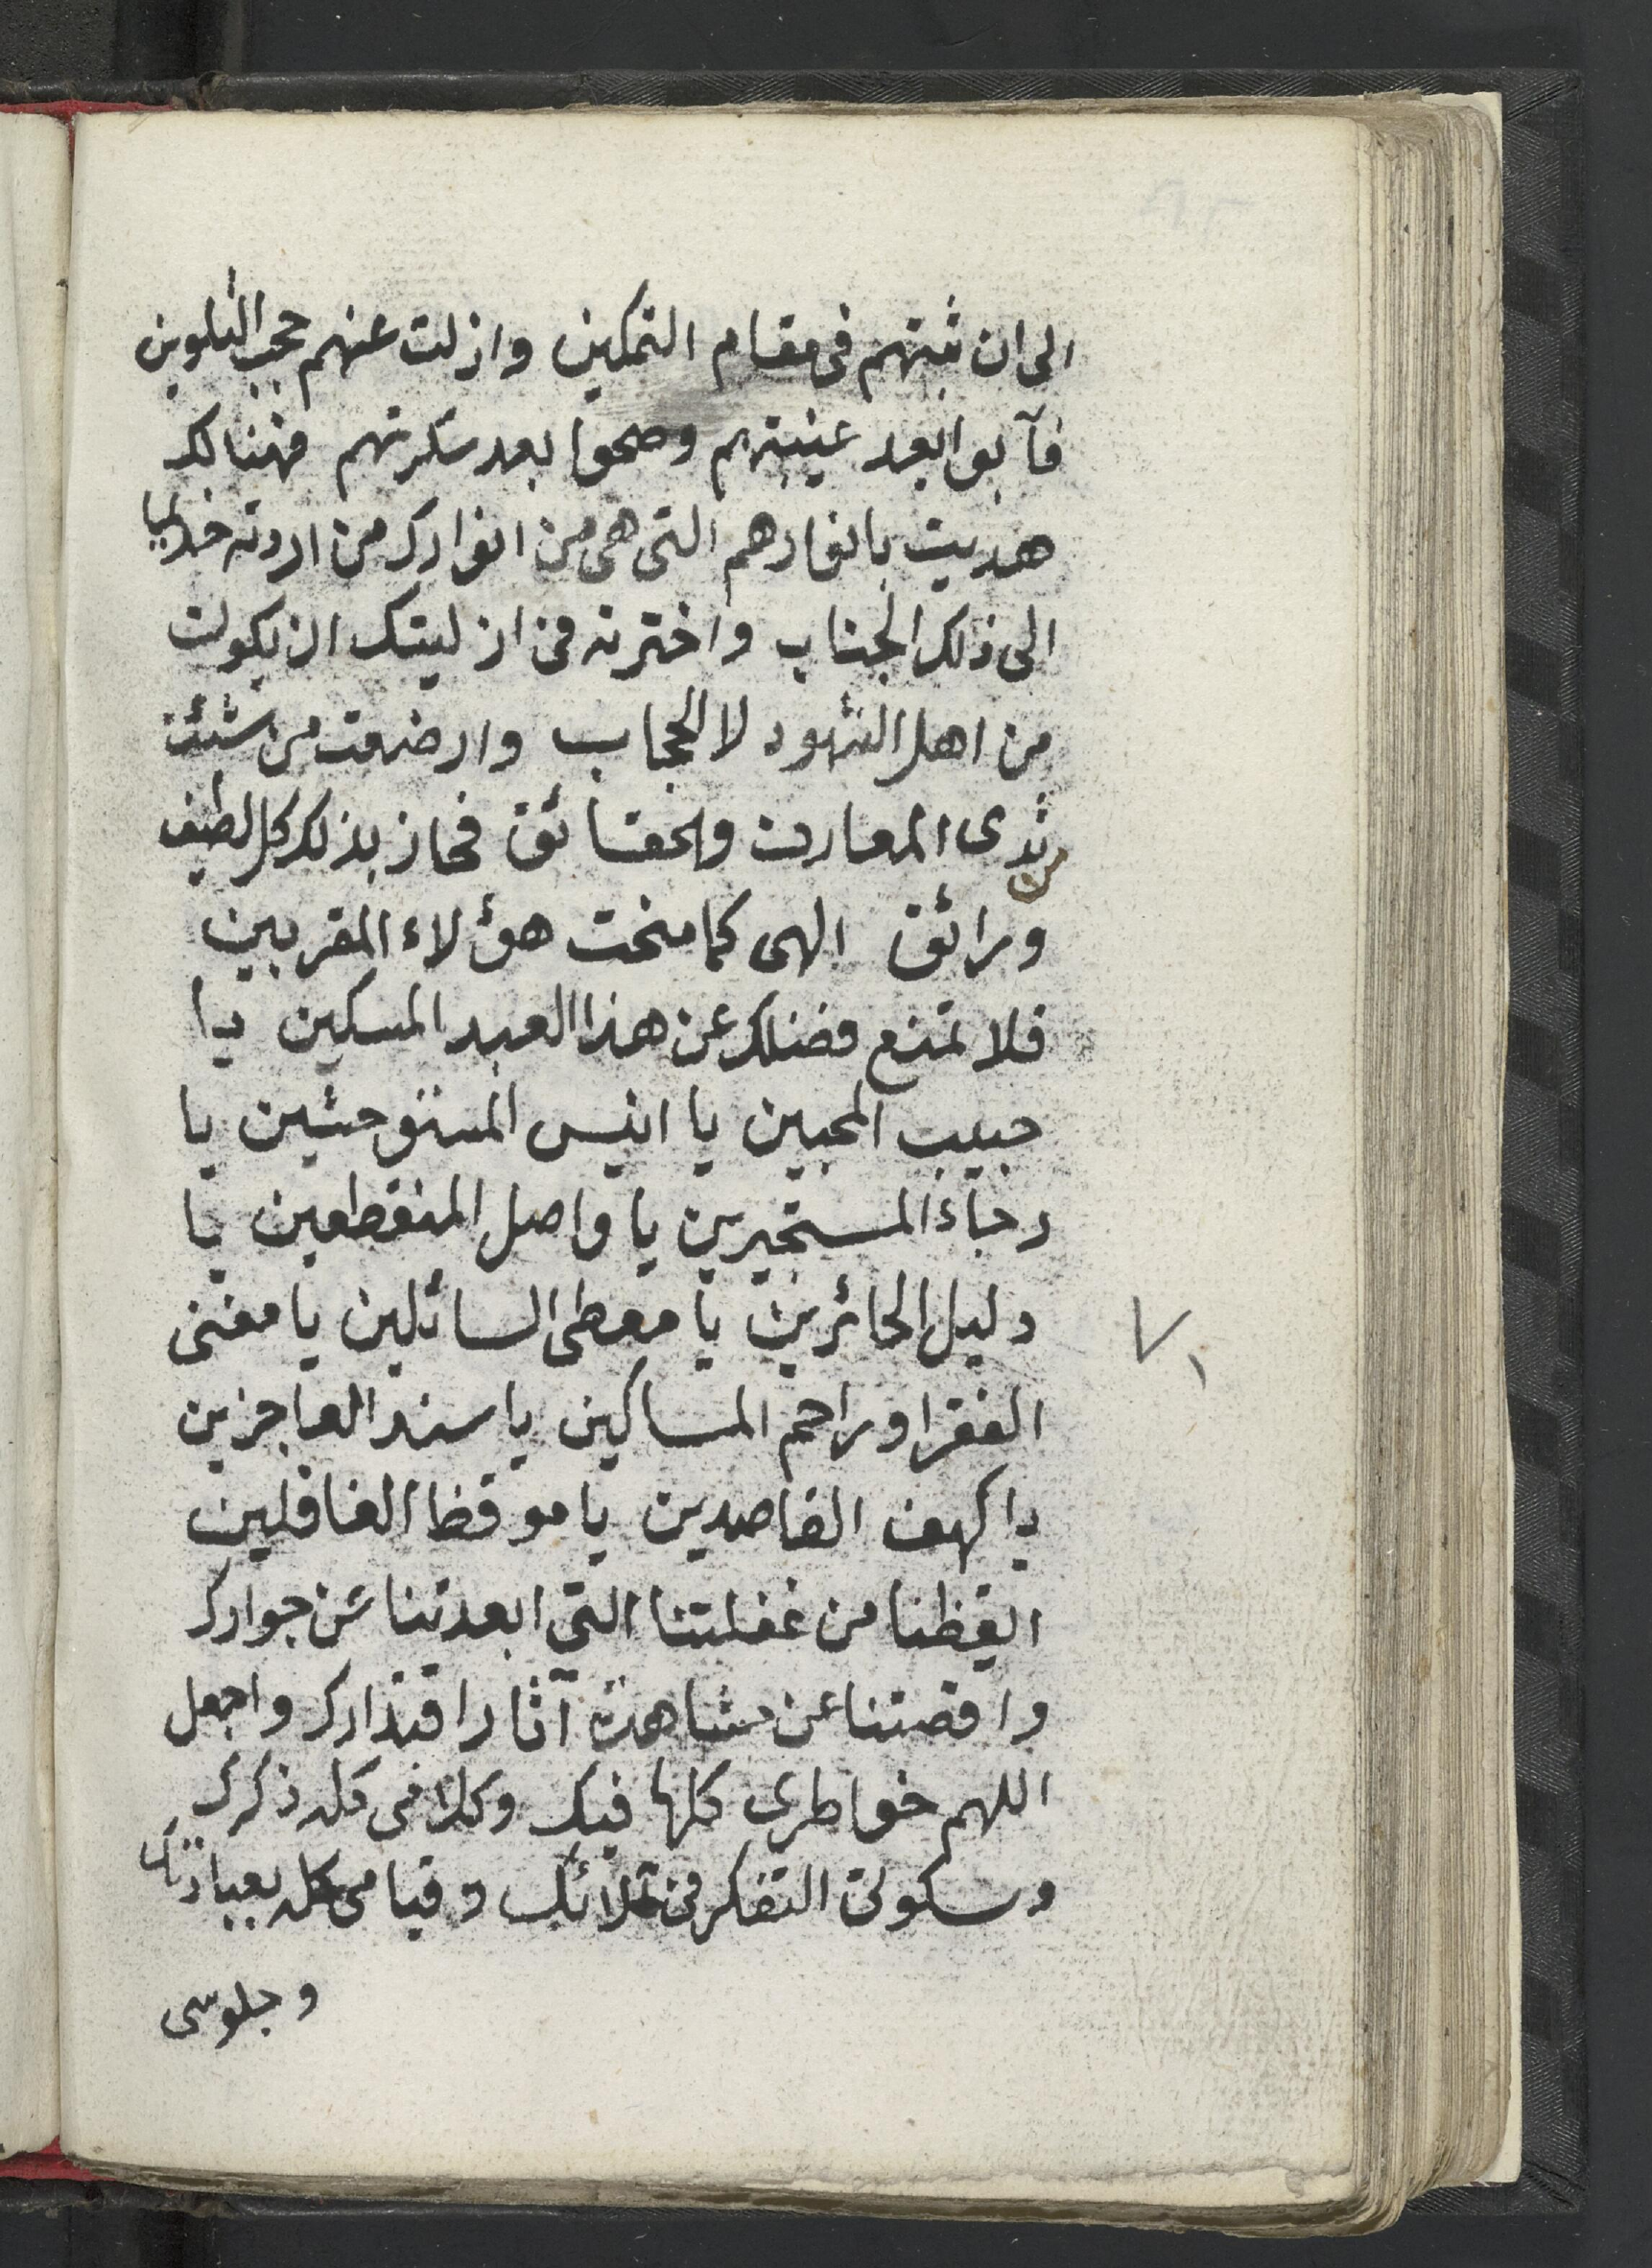 الى ان ثبتهم فى مقام التمكين وازلت عنهم حجب التلوين
فآبوا بعد غيبتهم وصحوا بعد سكرتهم فهنالك
هديت بانوارهم التى هى من انوارك من اردته
الى ذلك الجناب واخترته فى ازليتك ان يكون
من اهل الشهود لا الحجاب وارضعت من شئت
من ثدى المعارف والحقائق فحاز بذلك كل لطيف
ورائق الهى كما منحت هؤلاء المقربين
فلا تمنع فضلك عن هذا العبد المسكين يا
حبيب المحبين يا انيس المستوحشين يا
رجاء المستجيرين يا واصل المنقطعين يا
دليل الحائرين يا معطى السائلين يا مغنى
الفقرا وراحم المساكين يا سند العاجزين
يا كهف القاصدين يا موقظ الغافلين
ايقظنا من غفلتنا التى ابعدتنا عن جوارك
واقصتنا عن مشاهدة آثار اقتدارك واجعل
اللهم خواطرى كلها فيك وكلامى كله ذكرك
وسكوتى التفكر فى وقيامى كله بعبادتك
وجلوسى
٧١